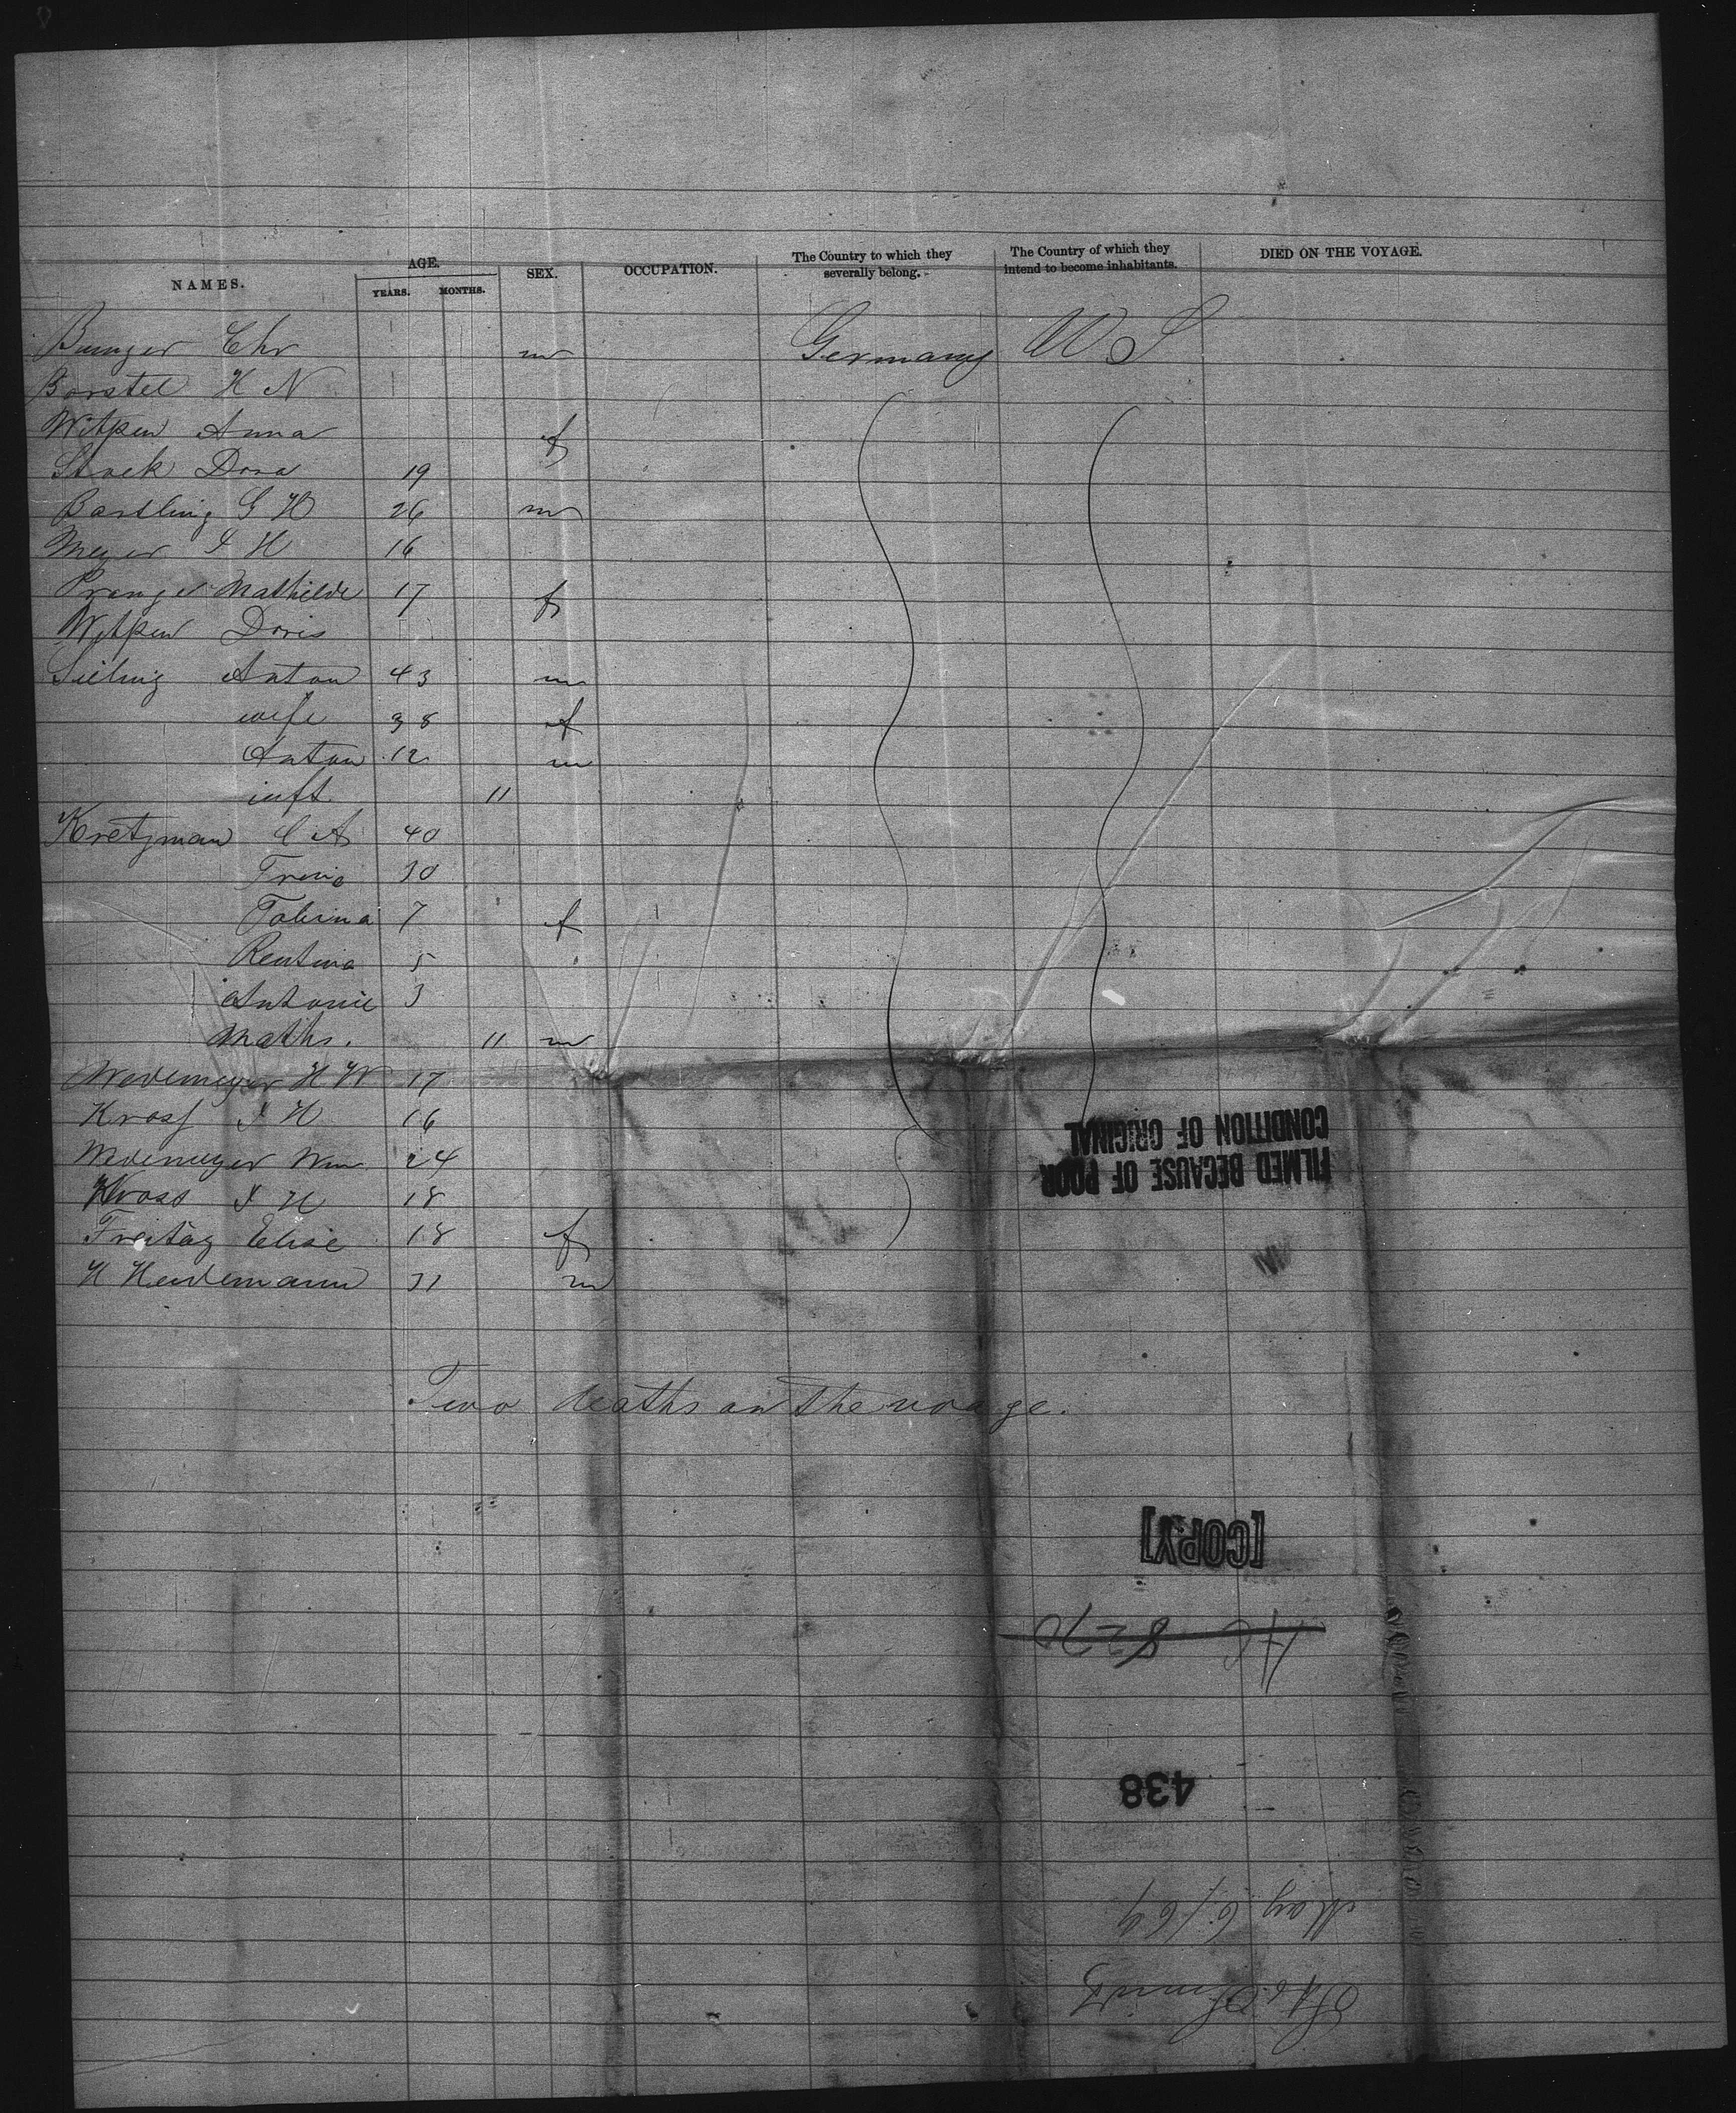 NAMES. AGE. YEARS. MONTHS. SEX. OCCUPATION. The Country to which they severally belong. The Country of which they intend to become inhabitants. DIED ON THE VOYAGE.
Chr m Germany U S
Borstel H N
Witpen Anna f
Stack Dora 19
Bartling G H 26 m
Meyer I H 16
Pranger Mathilde 17 f
Witpen Doris
Sieling Anton 43 m
wife 38 f
Anton 12 m
inft. 11
Kretzman C A 40
Trine 30
7 f
5
Antonie 3
Maths. 11 m
Wedemeyer H W 17
Kross I H 16
Wedemeyer Wm 24
Kross I H 18
Freitag Elise 18 f
H Heidemann 31 m
Two deaths on the voage.
FILMED BECAUSE OF POOR
CONDITION OF ORIGINAL
[COPY]
438
May 6/69